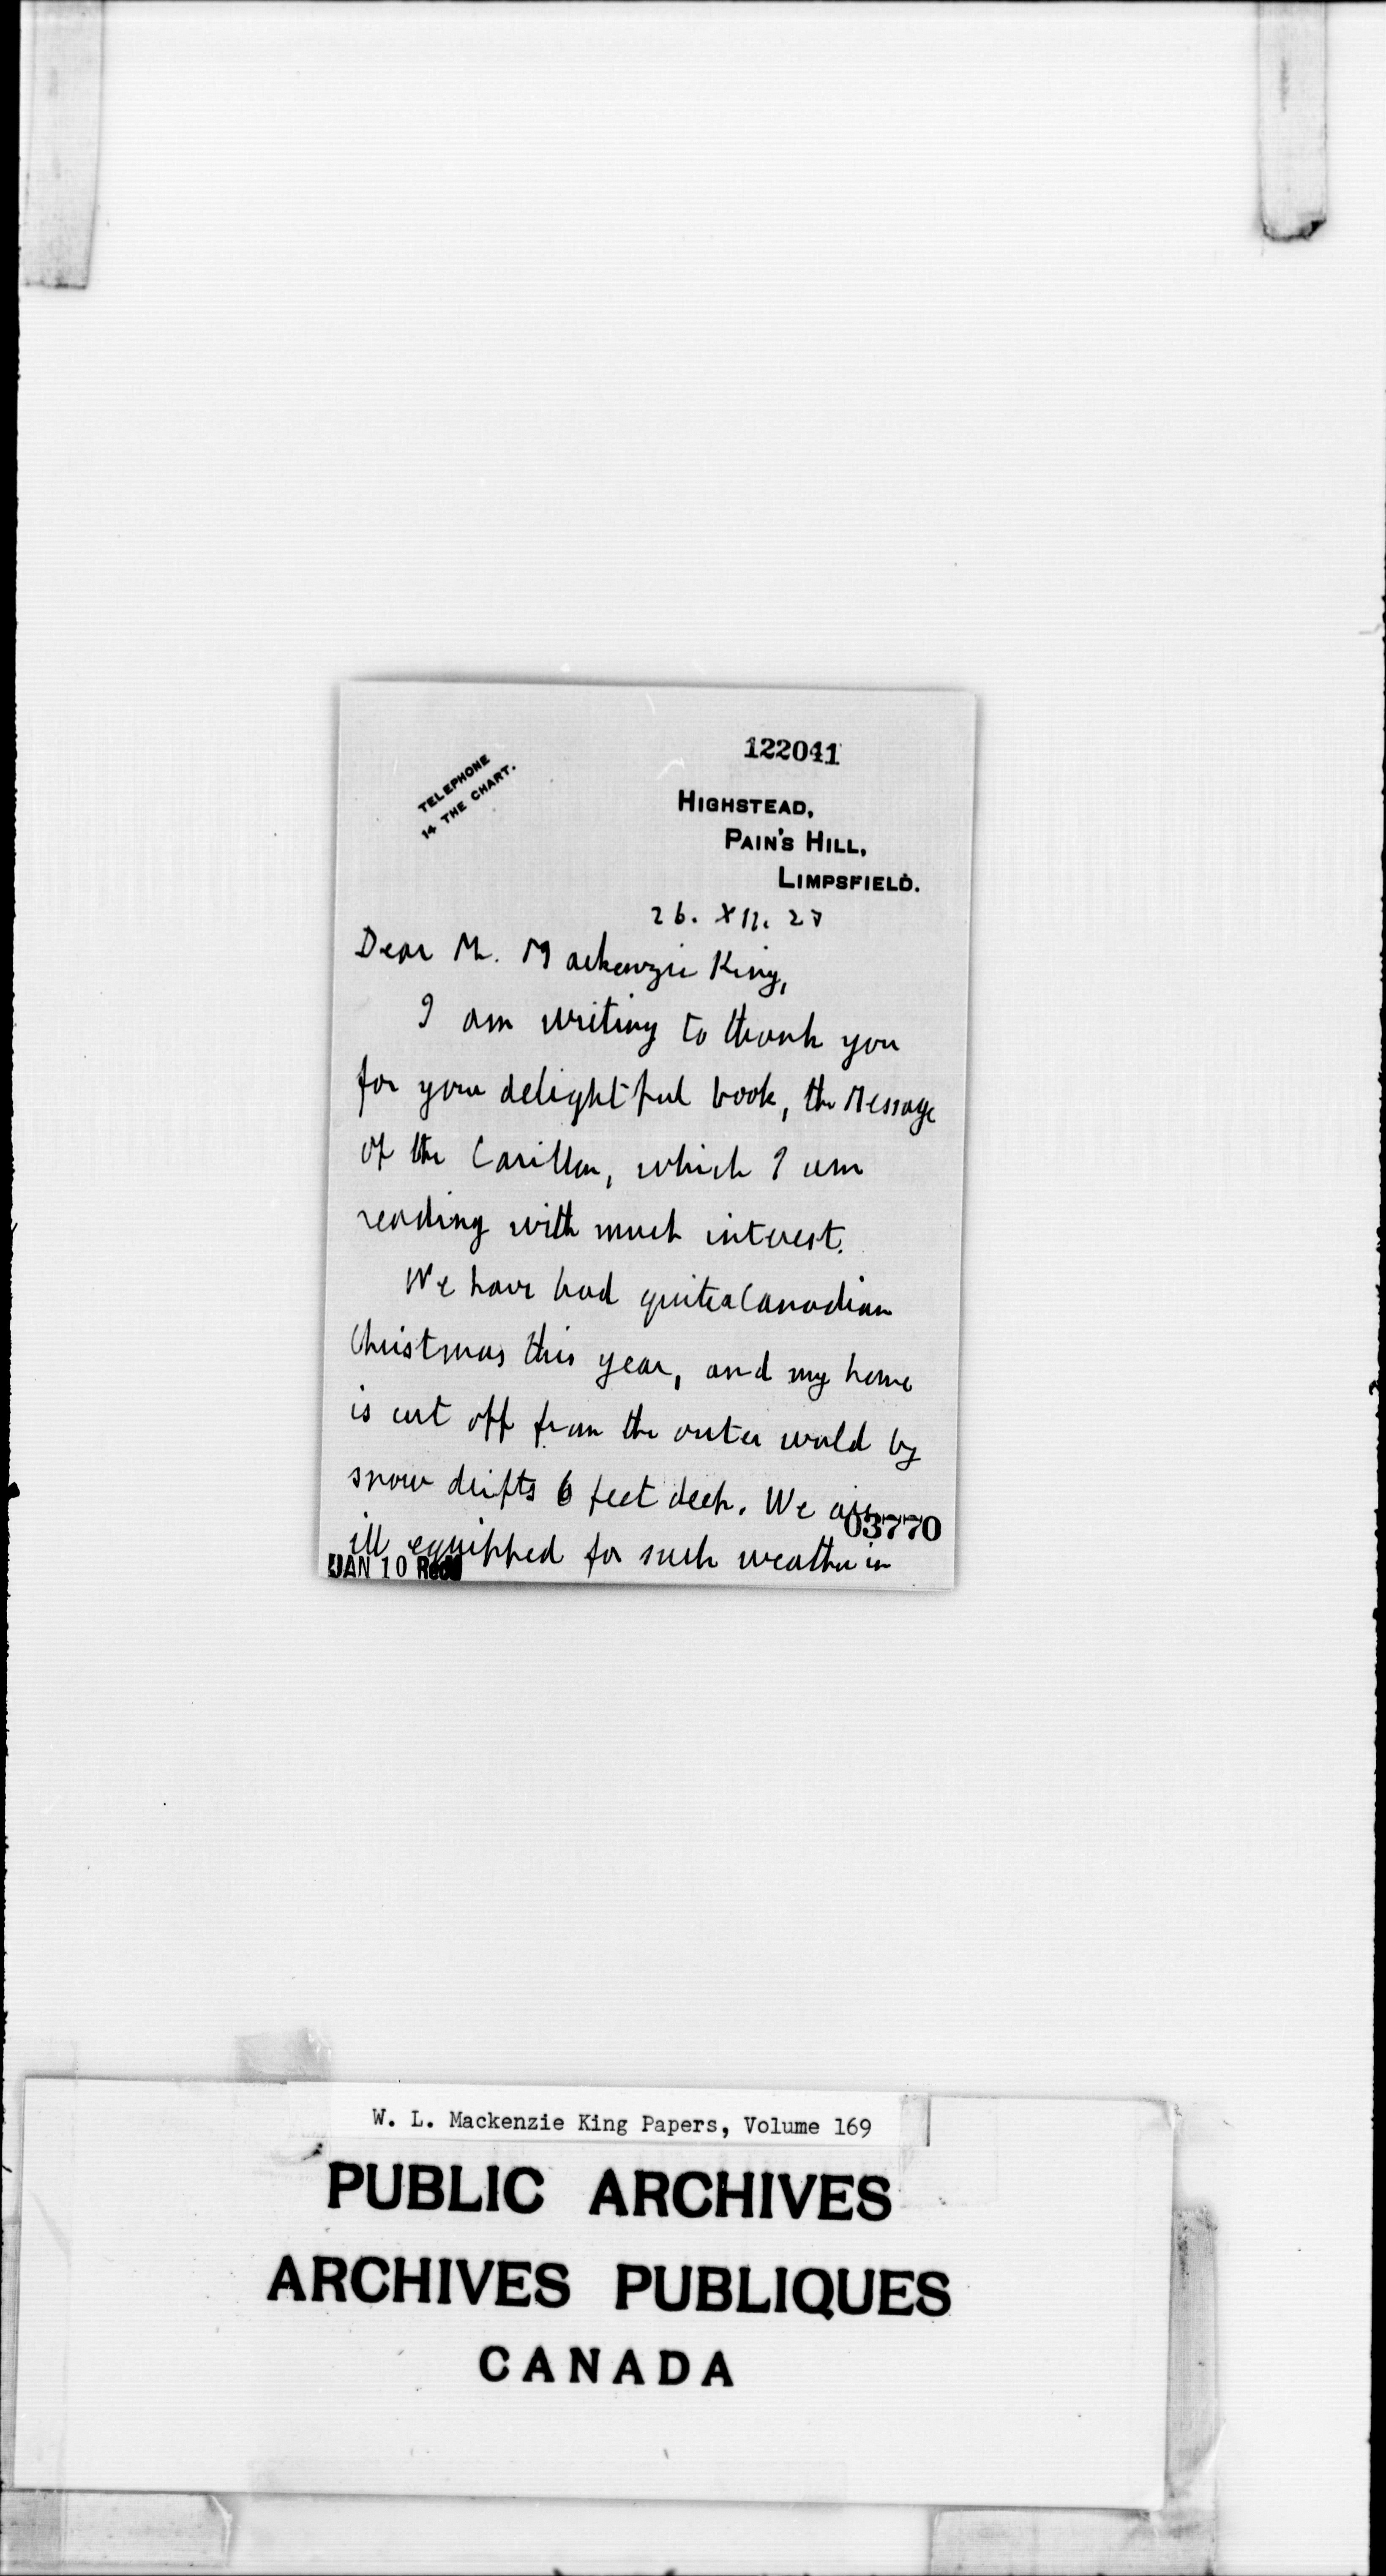 122041
TELEPHONE
14 THE CHART.
HIGHSTEAD,
PAIN'S HILL,
LIMPSFIELD.
26. XII. 27
Dear Mr. Mackenzie King,
I am writing to thank you
for your delightful book, the Message
of the Carillon, which I am
reading with much interest.
We have had quite a Canadian
Christmas this year, and my home
is cut off from the outer world by
snow drifts 6 feet deep. We are
03770
ill equipped for such weather in
JAN 10 Rec'd
W. L. Mackenzie King Papers, Volume 169
PUBLIC ARCHIVES
ARCHIVES PUBLIQUES
CANADA